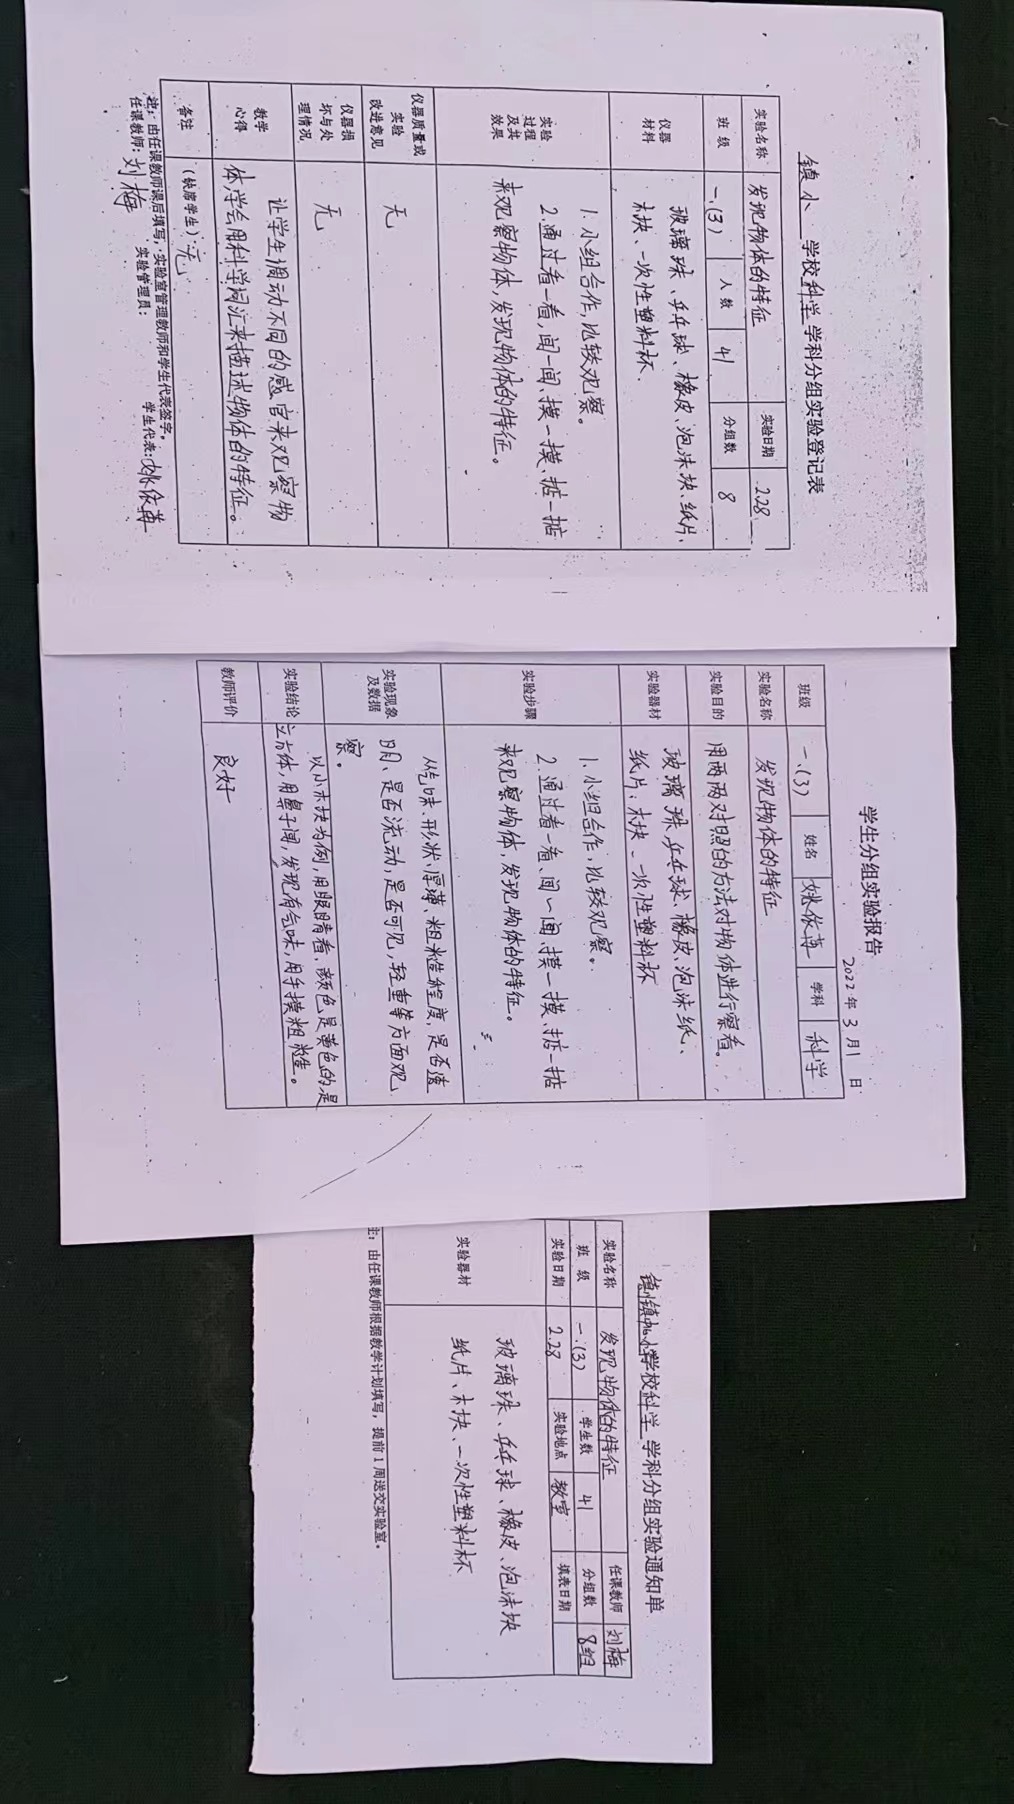 镇小 学校科学学科分组实验登记表
实验名称 发现物体的特征 实验日期 2.28
班 级 一.(3) 人 数 41 分组数 8
仪器
材料
玻璃珠、乒乓球、橡皮、泡沫块、纸片、
木块、一次性塑料杯、
实验
过程
及其
效果
1. 小组合作,比较观察。
2. 通过看一看,闻一闻、摸一摸、掂一掂
来观察物体,发现物体的特征。
仪器质量或
实验
改进意见
无
仪器损
坏与处
理情况
无
教学
心得
让学生调动不同的感官来观察物
体,学会用科学词汇来描述物体的特征。
备注 (缺席学生)无
注:由任课教师课后填写,实验室管理教师和学生代表签字。
任课教师:刘梅 实验管理员: 学生代表:姚依苒
学生分组实验报告
2022年 3 月1 日
班级 一.(3) 姓名 姚依苒 学科 科学
实验名称 发现物体的特征
实验目的 用两两对照的方法对物体进行察看。
实验器材
玻璃珠、乒乓球、橡皮、泡沫纸、
纸片、木块、一次性塑料杯
实验步骤
1. 小组合作,比较观察。
2. 通过看一看、闻一闻、摸一摸、掂一掂
来观察物体,发现物体的特征。
实验现象
及数据
从气味、形状、厚薄、粗糙程度,是否透
明、是否流动,是否可见,轻重等方面观
察。
实验结论
以小木块为例,用眼睛看,颜色是黄色的是
立方体,用鼻子闻,发现有气味,用手摸粗糙。
教师评价 良好
学校科学 学科分组实验通知单
实验名称 发现物体的特征 任课教师 刘梅
班 级 一.(3) 学生数 41 分组数 8组
实验日期 2.28 实验地点 教室 填表日期
实验器材
玻璃珠、乒乓球、橡皮、泡沫块
纸片、木块、一次性塑料杯
注:由任课教师根据教学计划填写,提前1周送交实验室。